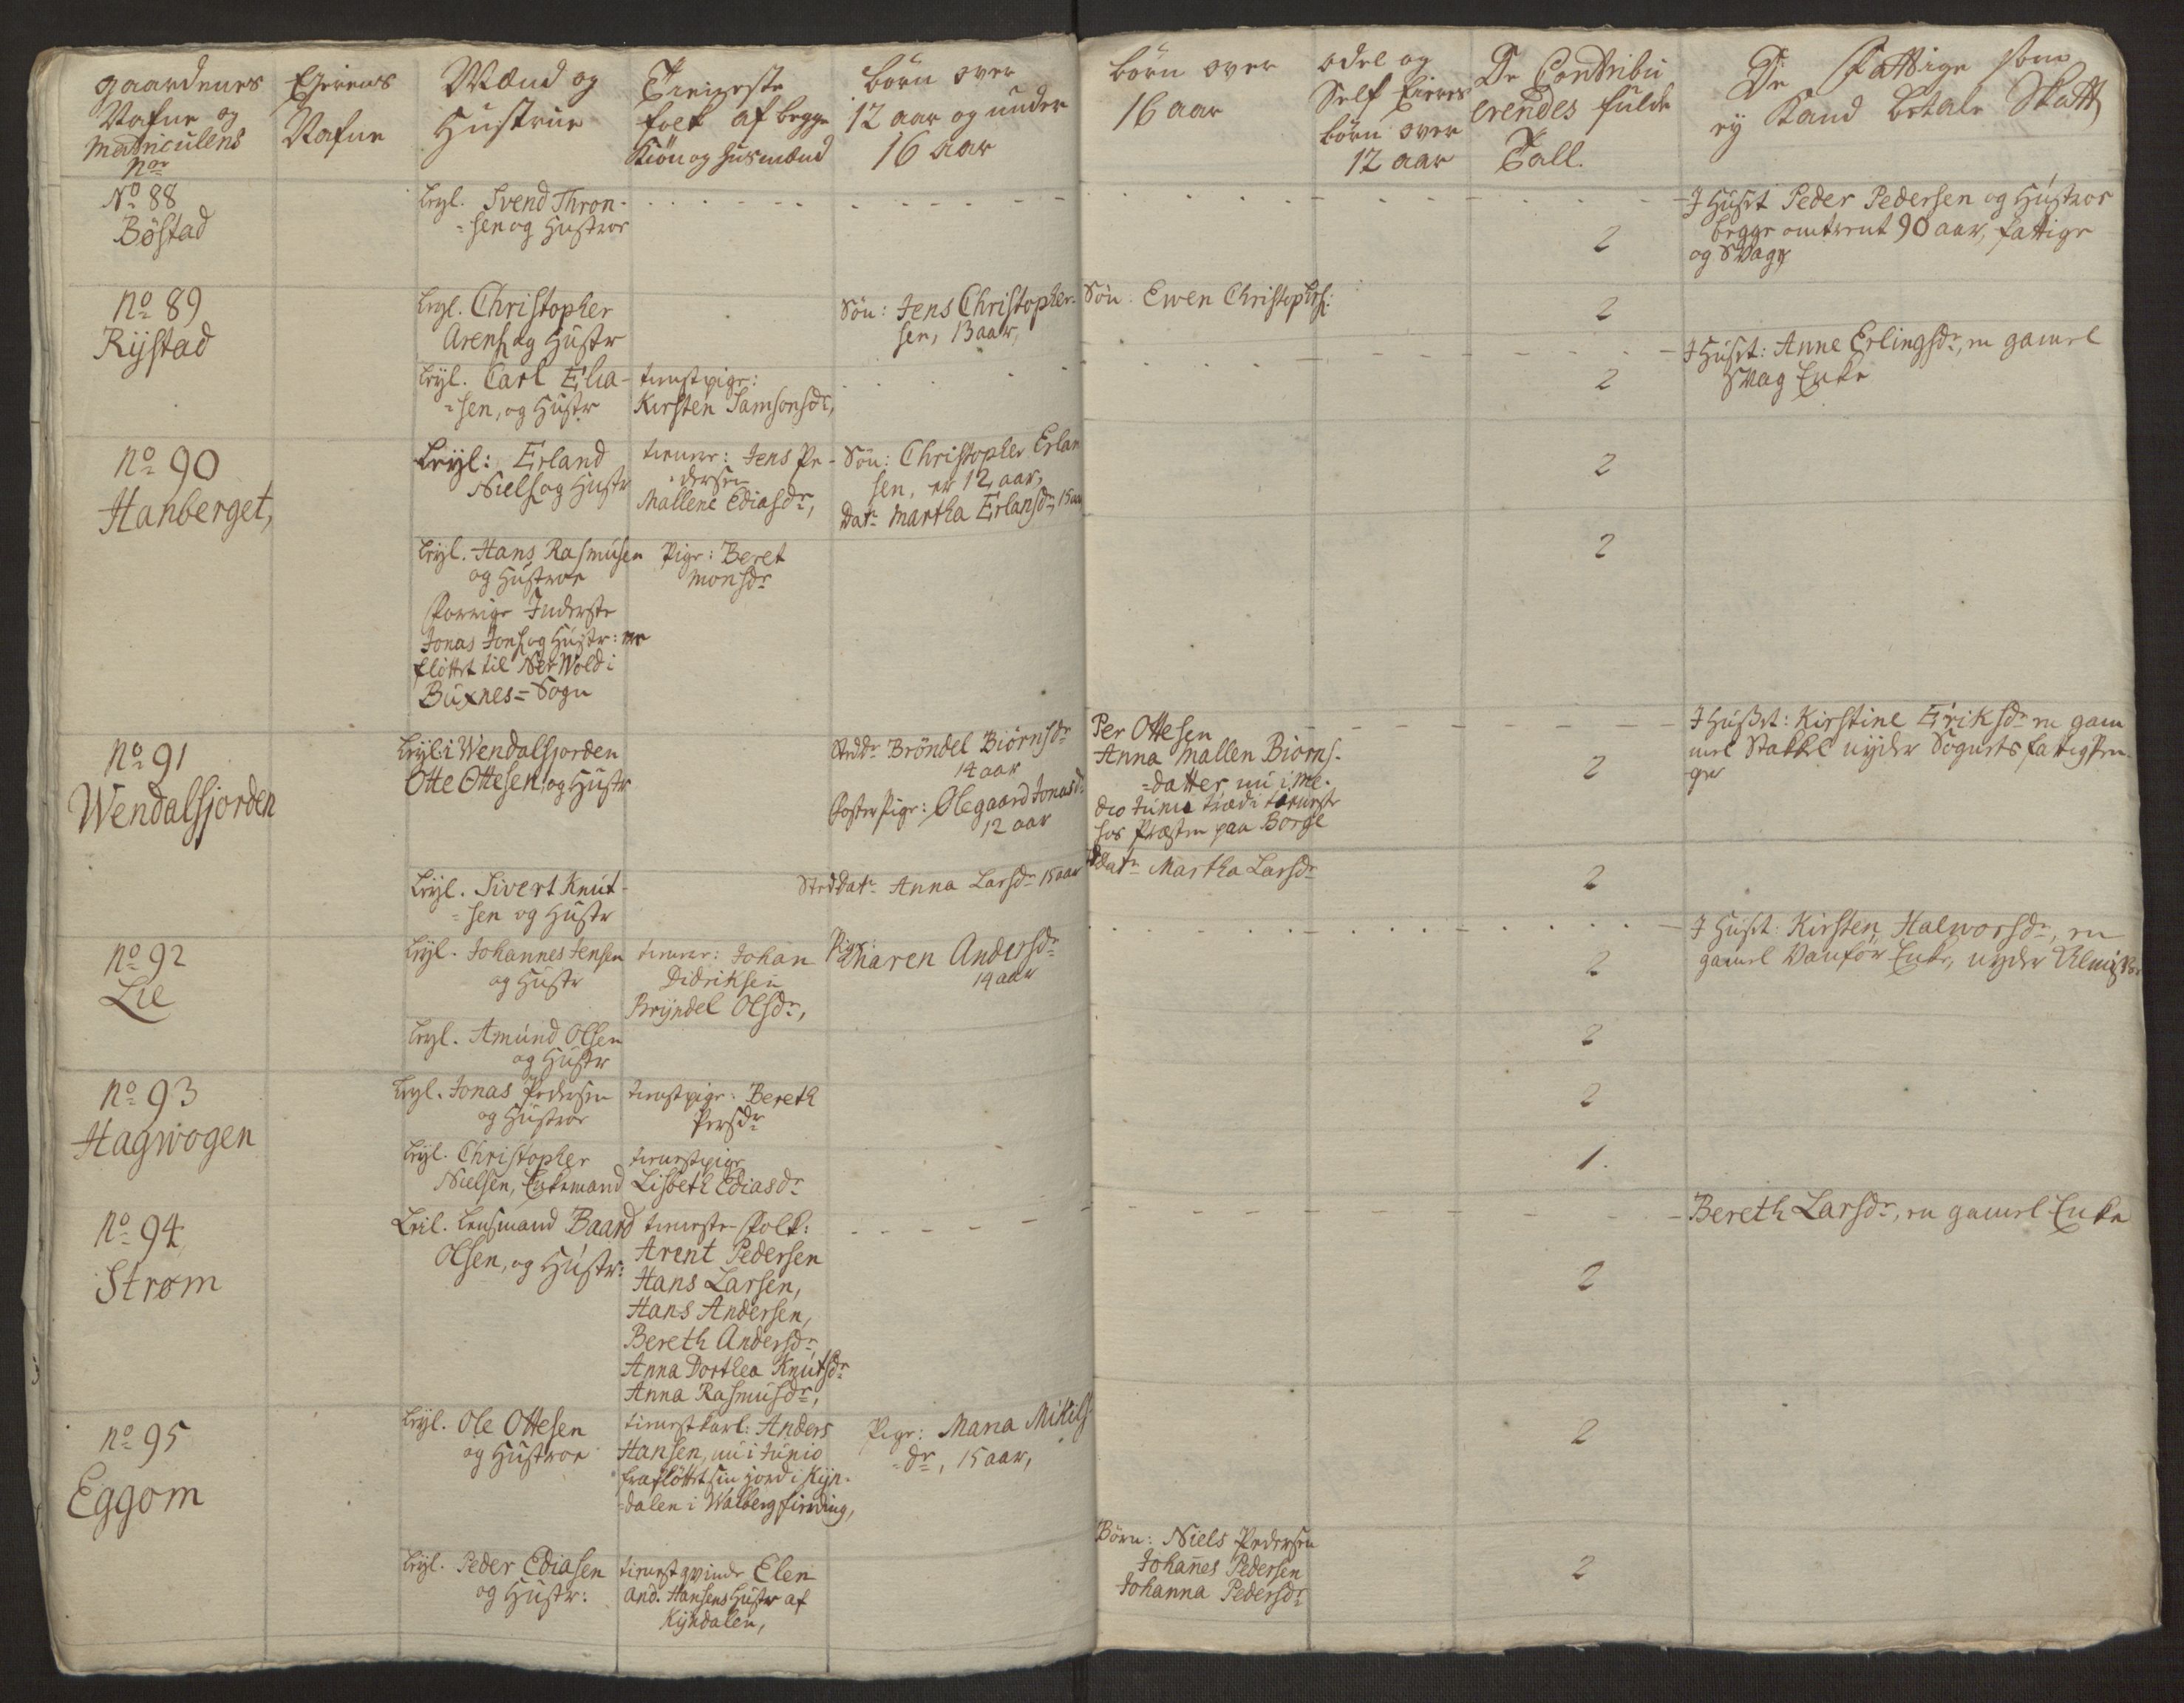 gaardenes
Nafne og
Matriculens
Nor
Eierens
Nafne
Mænd og
Hustrue
Tieneste
folk af begge
Kiön og Husmænd
börn over
12 aar og under
16 aar
börn over
16 aar
odel og
Self Eieres
börn over
12 aar
De Contribu
erendes fulde
Tall.
De Fattige som
ey Kand betale Skatt
No 88
Böstad
Leyl. Svend Thron-
=sen og Hustroe
2
J Huset Peder Pedersen og Hustroe
begge omtrent 90 aar, fattige
og Svage
No 89
Rijstad
Leyl. Christopher
Arens. og Hustr
Sön: Jens Christopher-
sen, 13 aar,
Sön: Ewen Christophers:
2
Leyl. Carl Elia-
=sen, og Hustr
tienstpige:
Kirsten Samsonsdr,
2
J Huset: Anne Erlingsdr, en gamel
Svag Enke
No 90
Hanberget,
Leyl: Erland
Niels. og Hustr
tienere: Jens Pe-
=dersen
Mallene Ediasdr,
Sön: Christopher Erlan
sen, er 12 aar,
Datr Martha Erlansdr, 15 aar
2
Leyl. Hans Rasmusen
og Hustroe
Pige: Beret
Monsdr
2
Forrige Inderste
Jonas Jons. og Hustr: er
flöttet til Ner Wold i
Buxnes=Sogn
No 91
Wendalsfjorden
Leyl: i Wendalsfjorden
Otte Ottesen, og Hustr
Stedr Bröndel Biörnsdr
14 aar
Foster Pige: Olegaard Jonasdr
12 aar
Per Ottesen
Anna Mallen Biörns.
=datter nu i me-
dio Junii trædi tieneste
hos Præsten paa Borge
2
J Huset: Kirstine Eriksdr en gam
mel Stakkel nyder Sognets fattig Pen-
ge
Leyl. Sivert Knut-
=sen og Hustr
Sted Datr Anna Larsdr 15 aar
Datr Martha Larsdr
2
No 92
Lie
Leyl. Johannes Jensen
og Hustr
tienere: Johan
Didriksen
Bryndel Olsdr,
Pige:
Maren Andersdr
14 aar
2
J Huset: Kirsten Halworsdr, en
gamel Vanför Enke, nyder
Leyl. Amund Olsen
og Hustr
2
No 93
Hagwogen
Leyl. Jonas Pedersen
og Hustroe
tienstpige: Bereth
Persdr
2
Leyl. Christopher
Nielsen, Enkemand
tienstpige
Lisbeth Ediasdr
1.
No 94
Strom
Leil. Lensmand Baard
Olsen, og Hustr:
tieneste-Folk:
Arent Pedersen
Hans Larsen,
Hans Andersen,
Bereth Andersdr
Anna Dorthea Knutsdr
Anna Rasmusdr,
2
Bereth Larsdr, en gamel Enke
No 95
Eggom
Leyl. Ole Ottesen
og Hustroe
tienestkarl: Anders
Hansen, nu i Junio
fraflöttet sin jord i Kyn-
=dalen i Walbergfierding,
Pige: Maria Mikils
=dr, 15 aar,
2
Leyl. Peder Ediasen
og Hustr:
tienestqvinde Elen
And. Hansens Hustr af
Kyndalen,
Börn: Niels Pedersen
Johañes Pedersen
Johanna Pedersdr
2